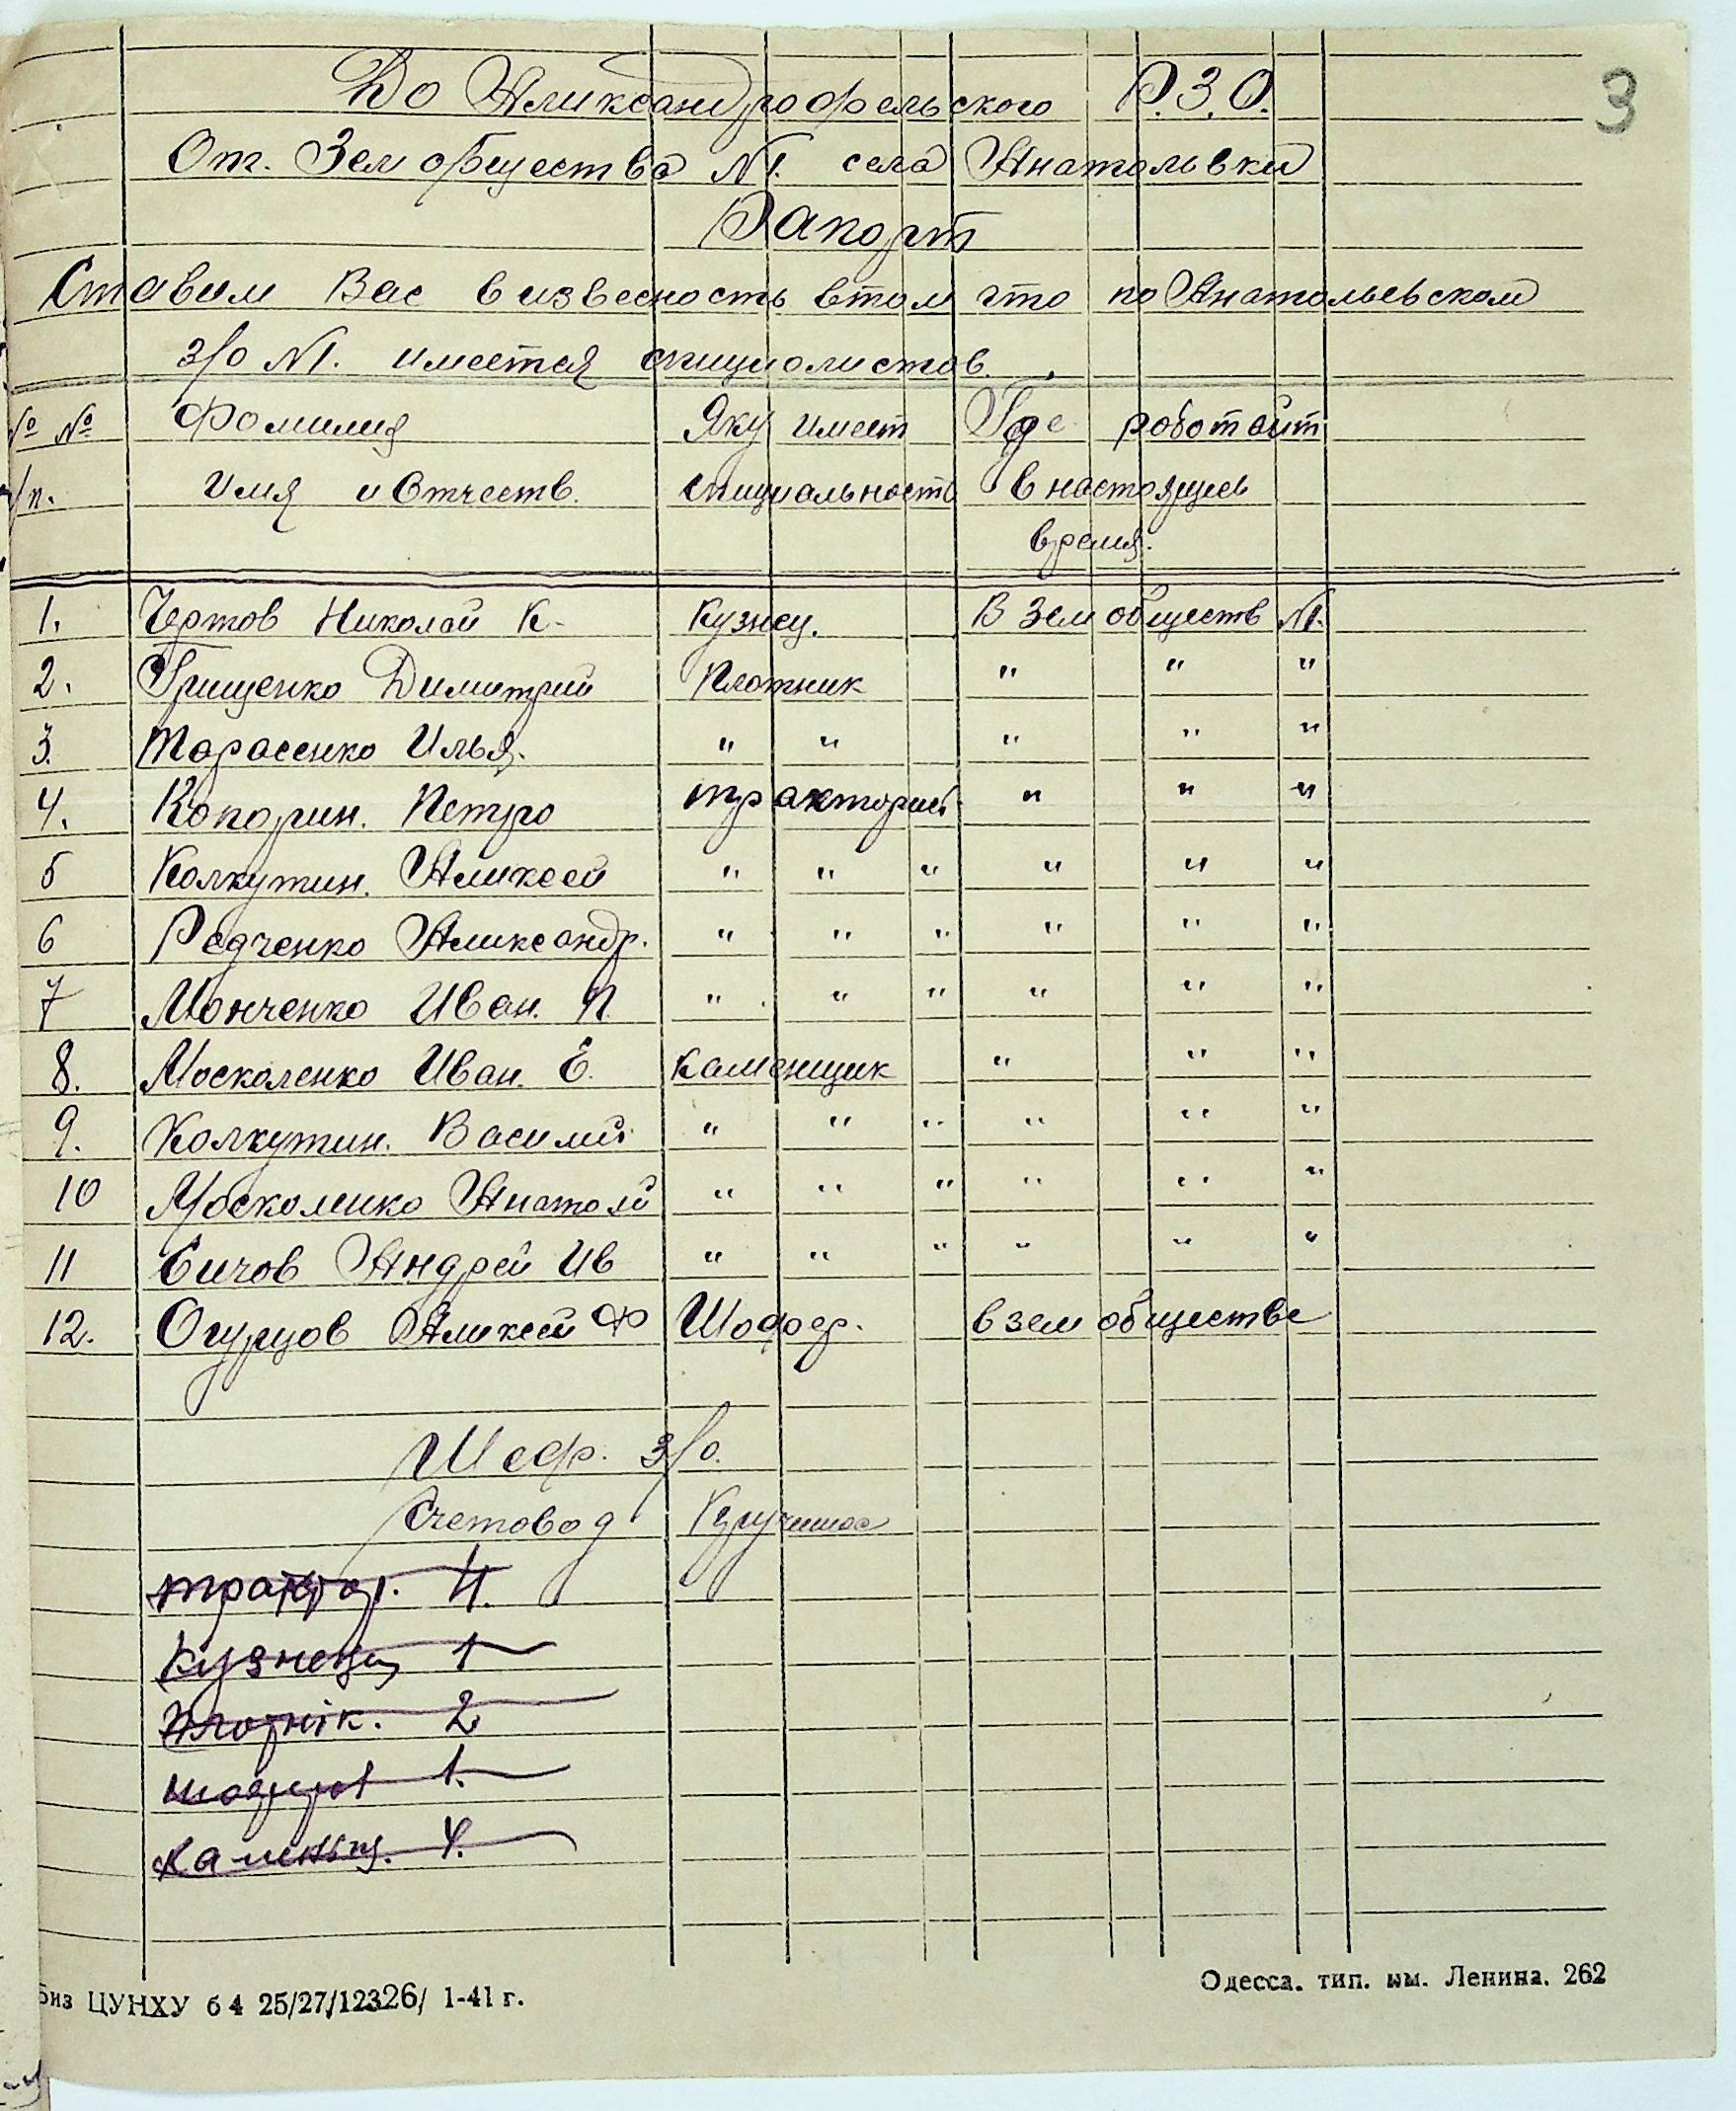 3
До Аликсандрофельского Р.З.О.
От. Земобщества №1. села Анатольвки
Рапорт
Ставим Вас визвесность втом что по Анатольевском
з/о №1. имеется специолистов.
№ № Фомилия Яку имеет Где роботаит
п/п. имя и Отчеств. специальность в настоящее
время.
1. Чертов Николай К. Кузнец. В Земобществ №1.
2. Грищенко Димитрий Плотник " " "
3. Тарасенко Илья. " " " " "
4. Копорин. Петро тракторист " " "
5 Колкутин. Аликсей " " " " " "
6 Редченко Аликсандр. " " " " " "
7 Монченко Иван. П. " " " " " "
8. Москаленко Иван. Е. Каменщик " " "
9. Колкутин. Василий " " " " " "
10 Москоленко Анатолий " " " " " "
11 Сичов Андрей Ив " " " " " "
12. Огурцов Аликсей Ф Шофер. вземобществе
Шеф. з/о.
Счетовод
трактор. 4.
Кузнец 1
Плотнік. 2
1.
Каменьщ. 4.
биз ЦУНХУ б4 25/27/12326/ 1-41 г.
Одесса. тип. им. Ленина. 262